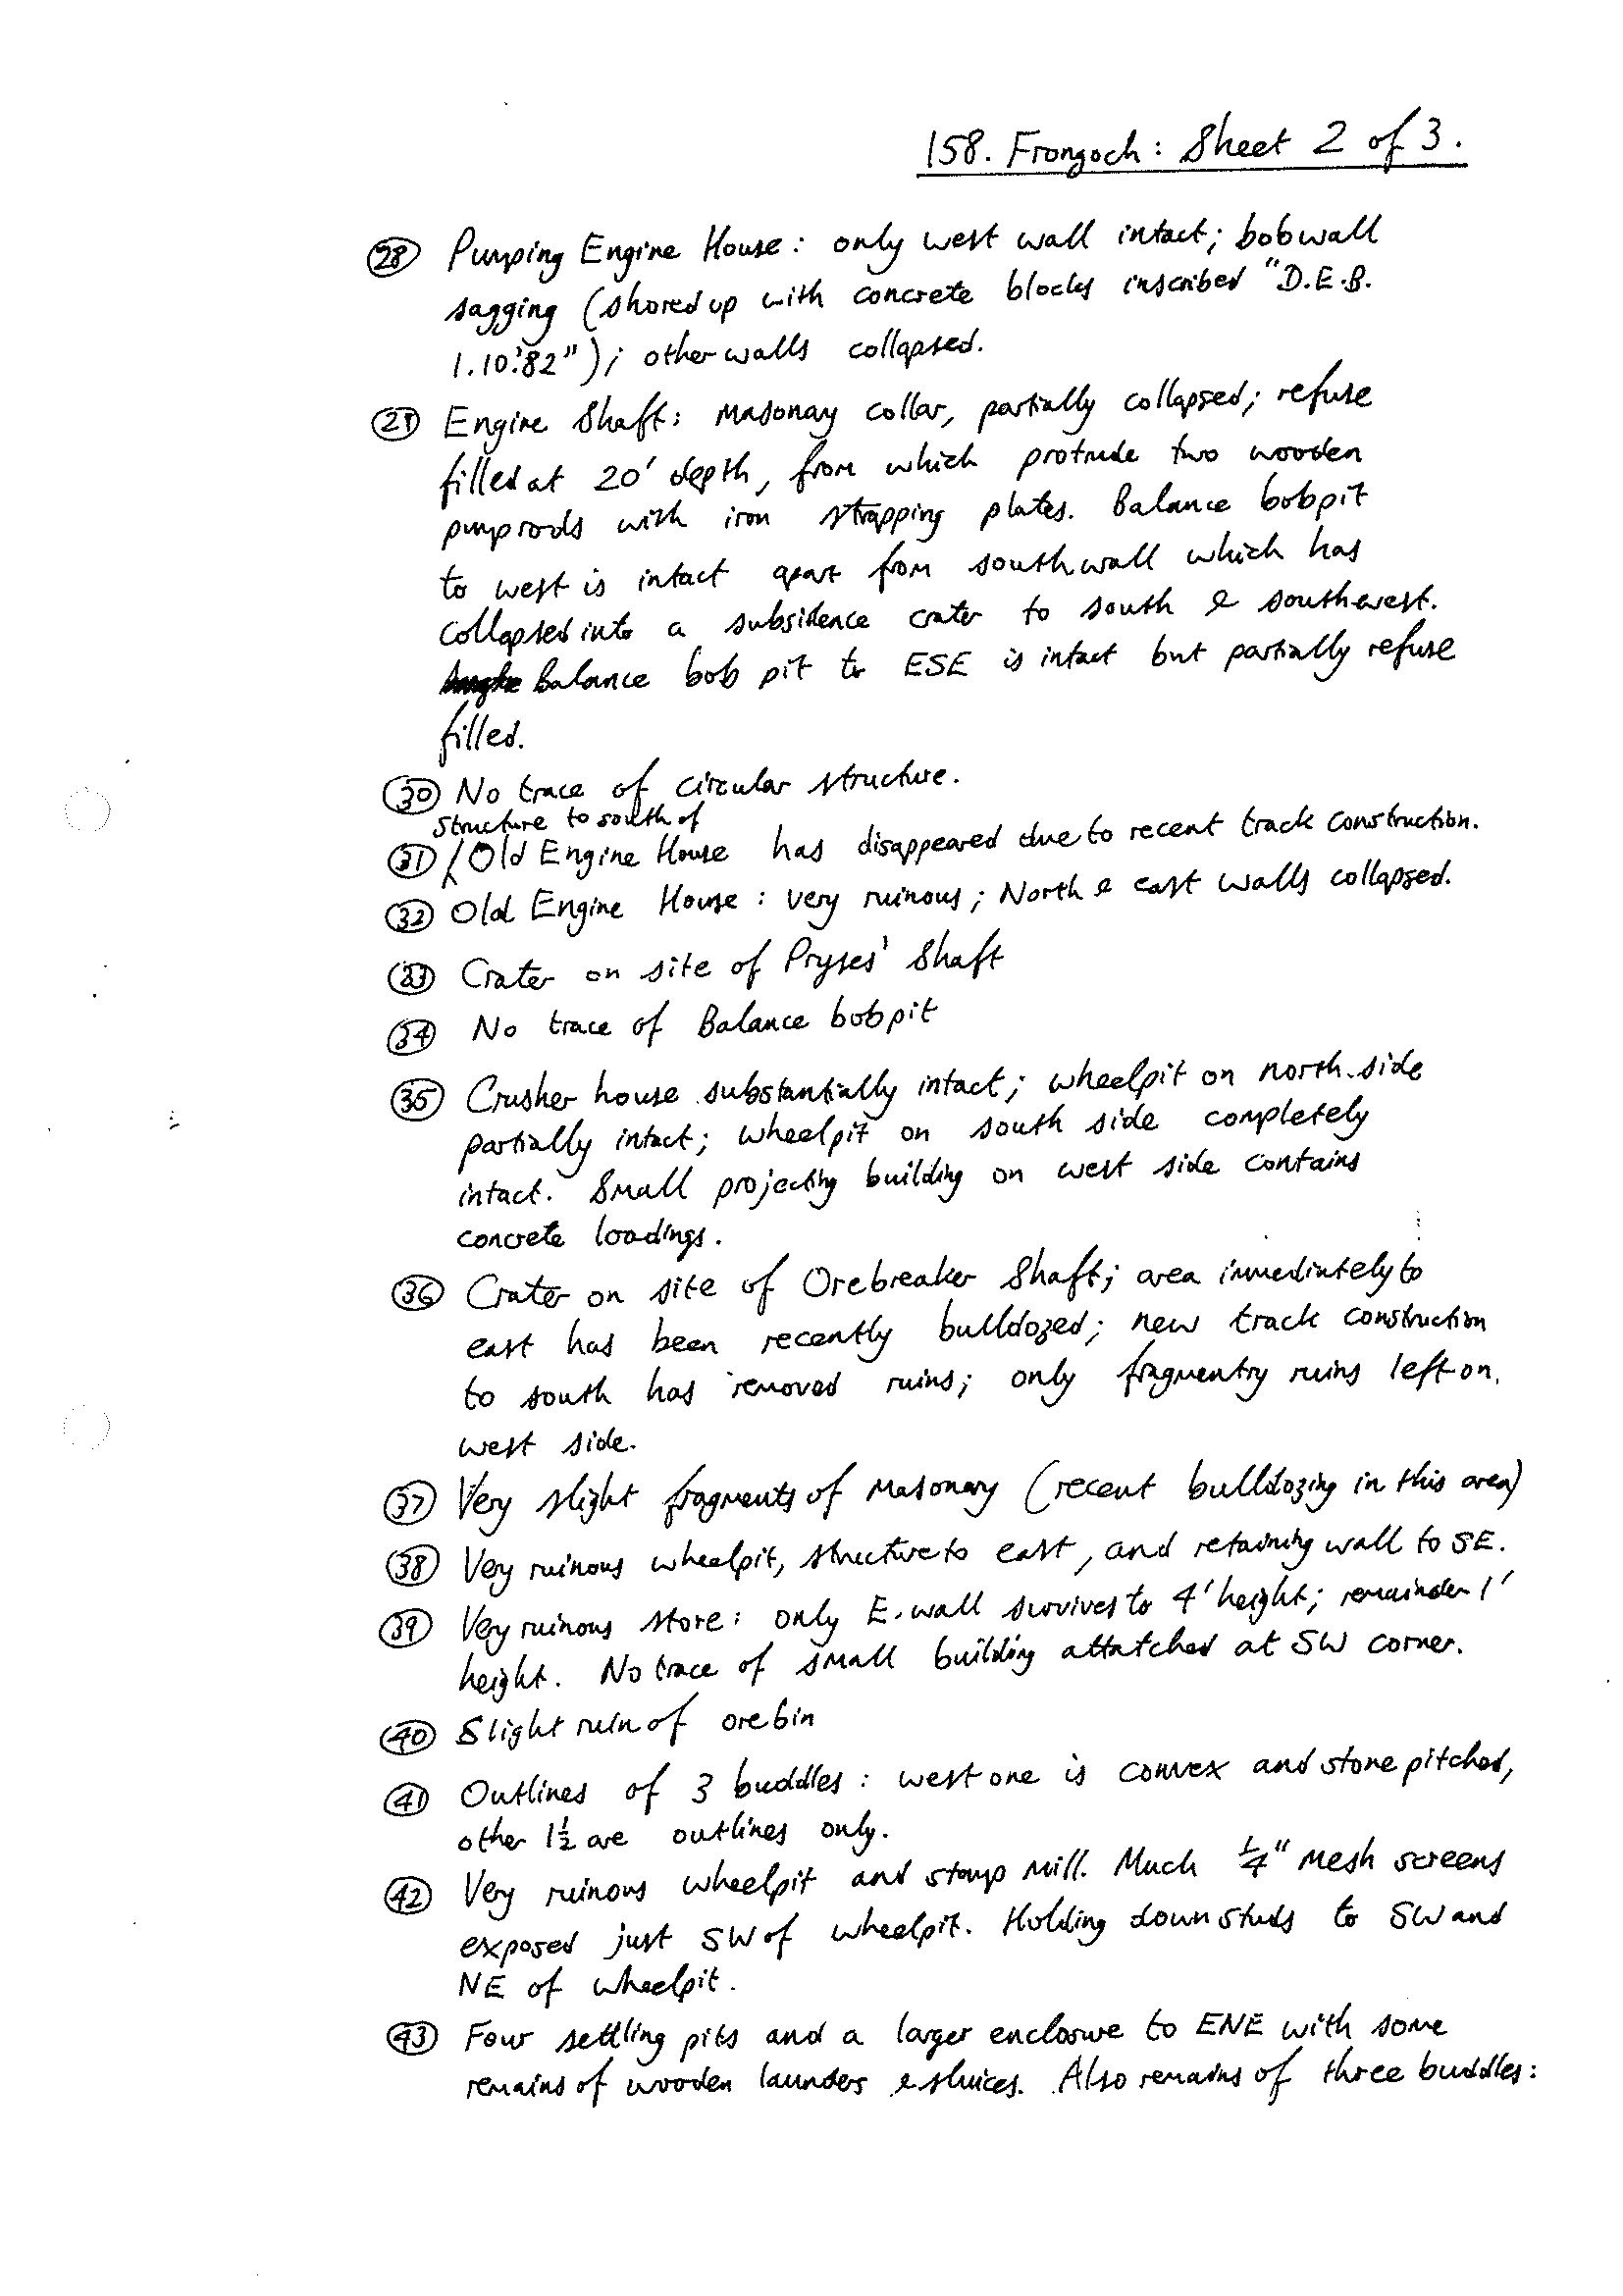 158. Frongoch: Sheet 2 of 3.
28 Pumping Engine House: only west wall intact; bobwall
sagging (shored up with concrete blocks inscribed "D.E.B.
1.10.'82"); other walls collapsed.
29 Engine Shaft: Masonary collar, partially collapsed; refuse
filled at 20' depth, from which protrude two wooden
pumprods with iron strapping plates. Balance bobpit
to west is intact apart from southwall which has
collapsed into a subsidence crater to south & southwest.
Balance bob pit to ESE is intact but partially refuse
filled.
30 No trace of circular structure.
structure to south of
31 Old Engine House has disappeared due to recent track construction.
32 Old Engine House: very ruinous; North & east walls collapsed.
33 Crater on site of Pryses' Shaft
34 No trace of Balance bobpit
35 Crusher house substantially intact; wheelpit on north side
partially intact; wheelpit on south side completely
intact. Small projecting building on west side contains
concrete loadings.
36 Crater on site of Orebreaker Shaft; area immediately to
east has been recently bulldozed; new track construction
to south has removed ruins; only fragmentry ruins left on
west side.
37 Very slight fragments of masonary (recent bulldozing in this area)
38 Very ruinous wheelpit, structure to east, and retaining wall to SE.
39 Very ruinous store: only E. wall survives to 4' height; remainder 1'
height. No trace of small building attatched at SW corner.
40 Slight ruin of orebin
41 Outlines of 3 buddles: west one is convex and stone pitched,
other 1½ are outlines only.
42 Very ruinous wheelpit and stamp mill. Much ¼" mesh screens
exposed just SW of wheelpit. Holding down studs to SW and
NE of wheelpit.
43 Four settling pits and a larger enclosure to ENE with some
remains of wooden launders & sluices. Also remains of three buddles: